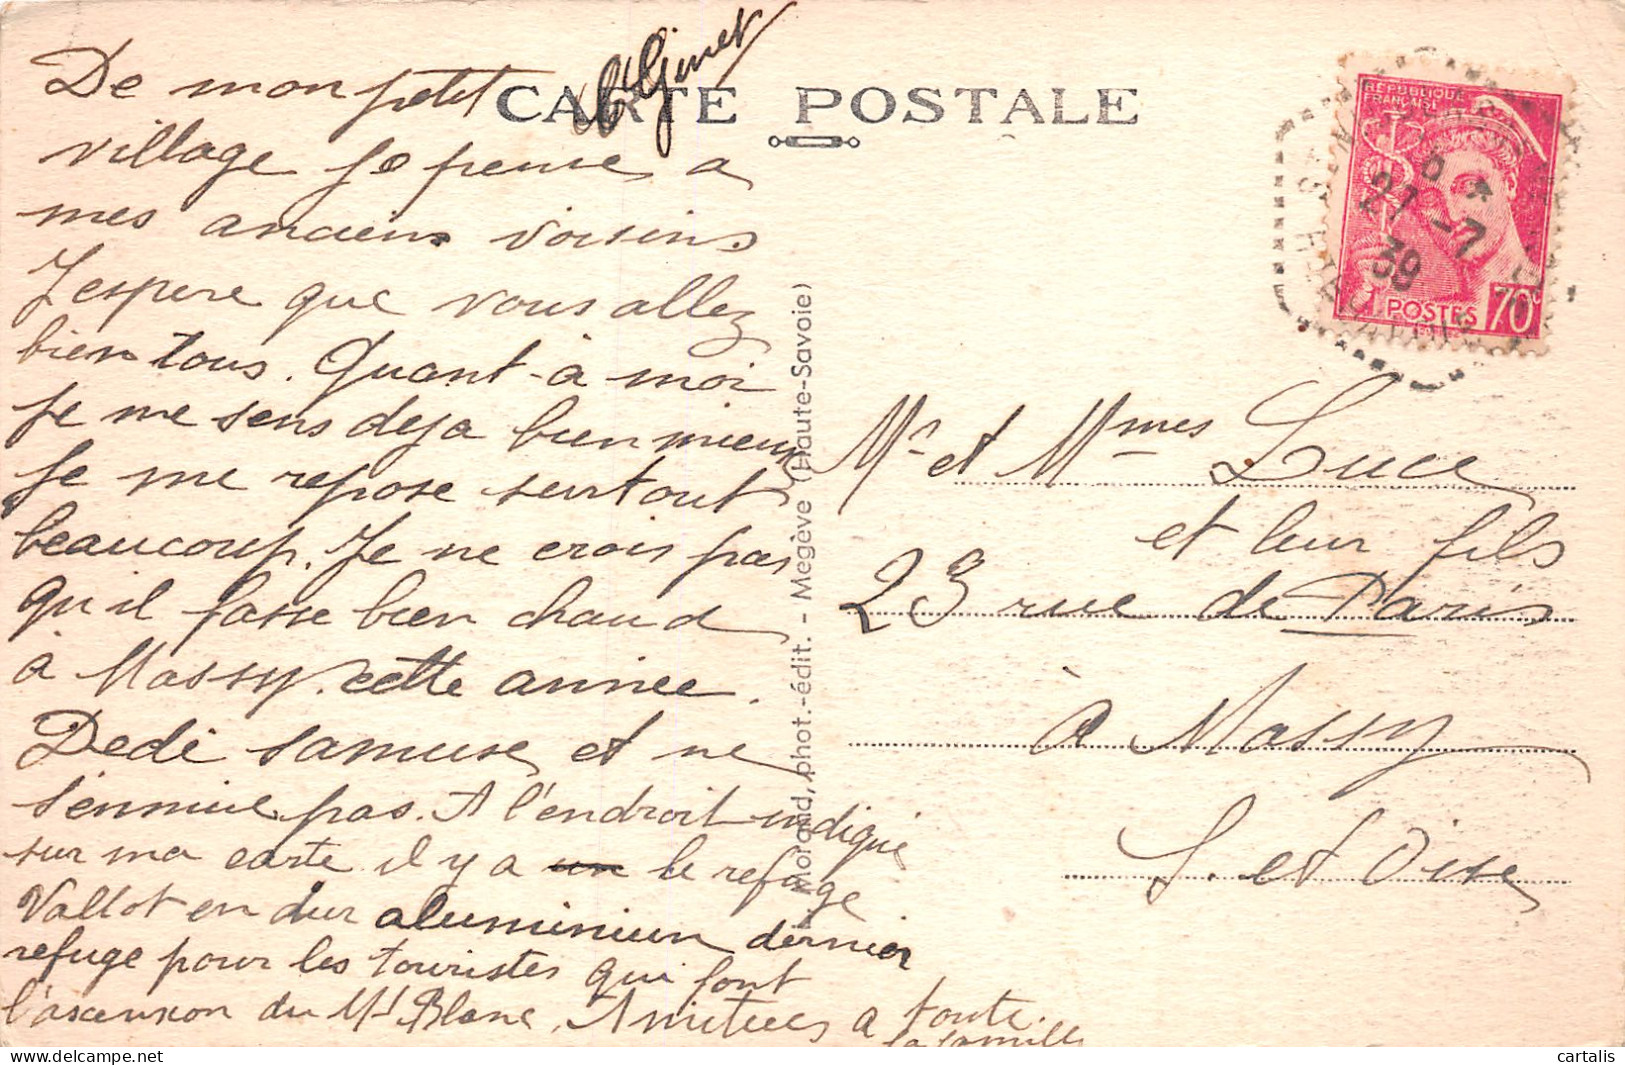 De mon petit
village je pense a
mes anciens voisins
J'espere que vous allez
bien tous. Quant-à moi
je me sens deja bien mieux
Je me repose surtout
beaucoup. Je ne crois pas
qu'il fasse bien chaud
à Massy cette année.
Dedé s'amuse et ne
s'ennuie pas. A l'endroit indiqué
sur ma carte il y a le refuge
Vallot en dur aluminium dernier
refuge pour les touristes qui font
l'ascension du Mt Blanc. Amitiees a toute
la famille
Ginet
CARTE POSTALE
Morand, phot.-édit. - Megève (Haute-Savoie)
REPUBLIQUE
FRANÇAISE
POSTES 70c
27 -7
39
Mr et Mmes Luce
et leur fils
23 rue de Paris
à Massy
S. et Oise
cartalis